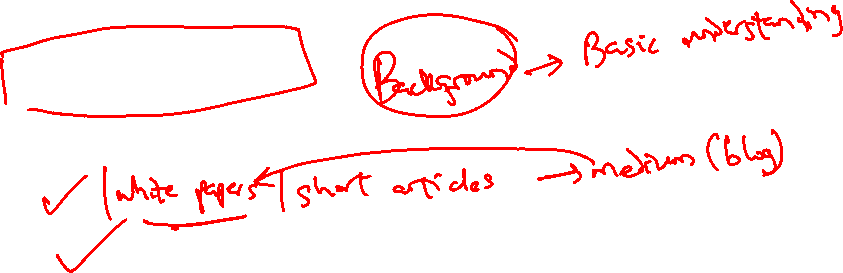 Background → Basic understanding
✓ | white papers | short articles → medium (blog)
✓